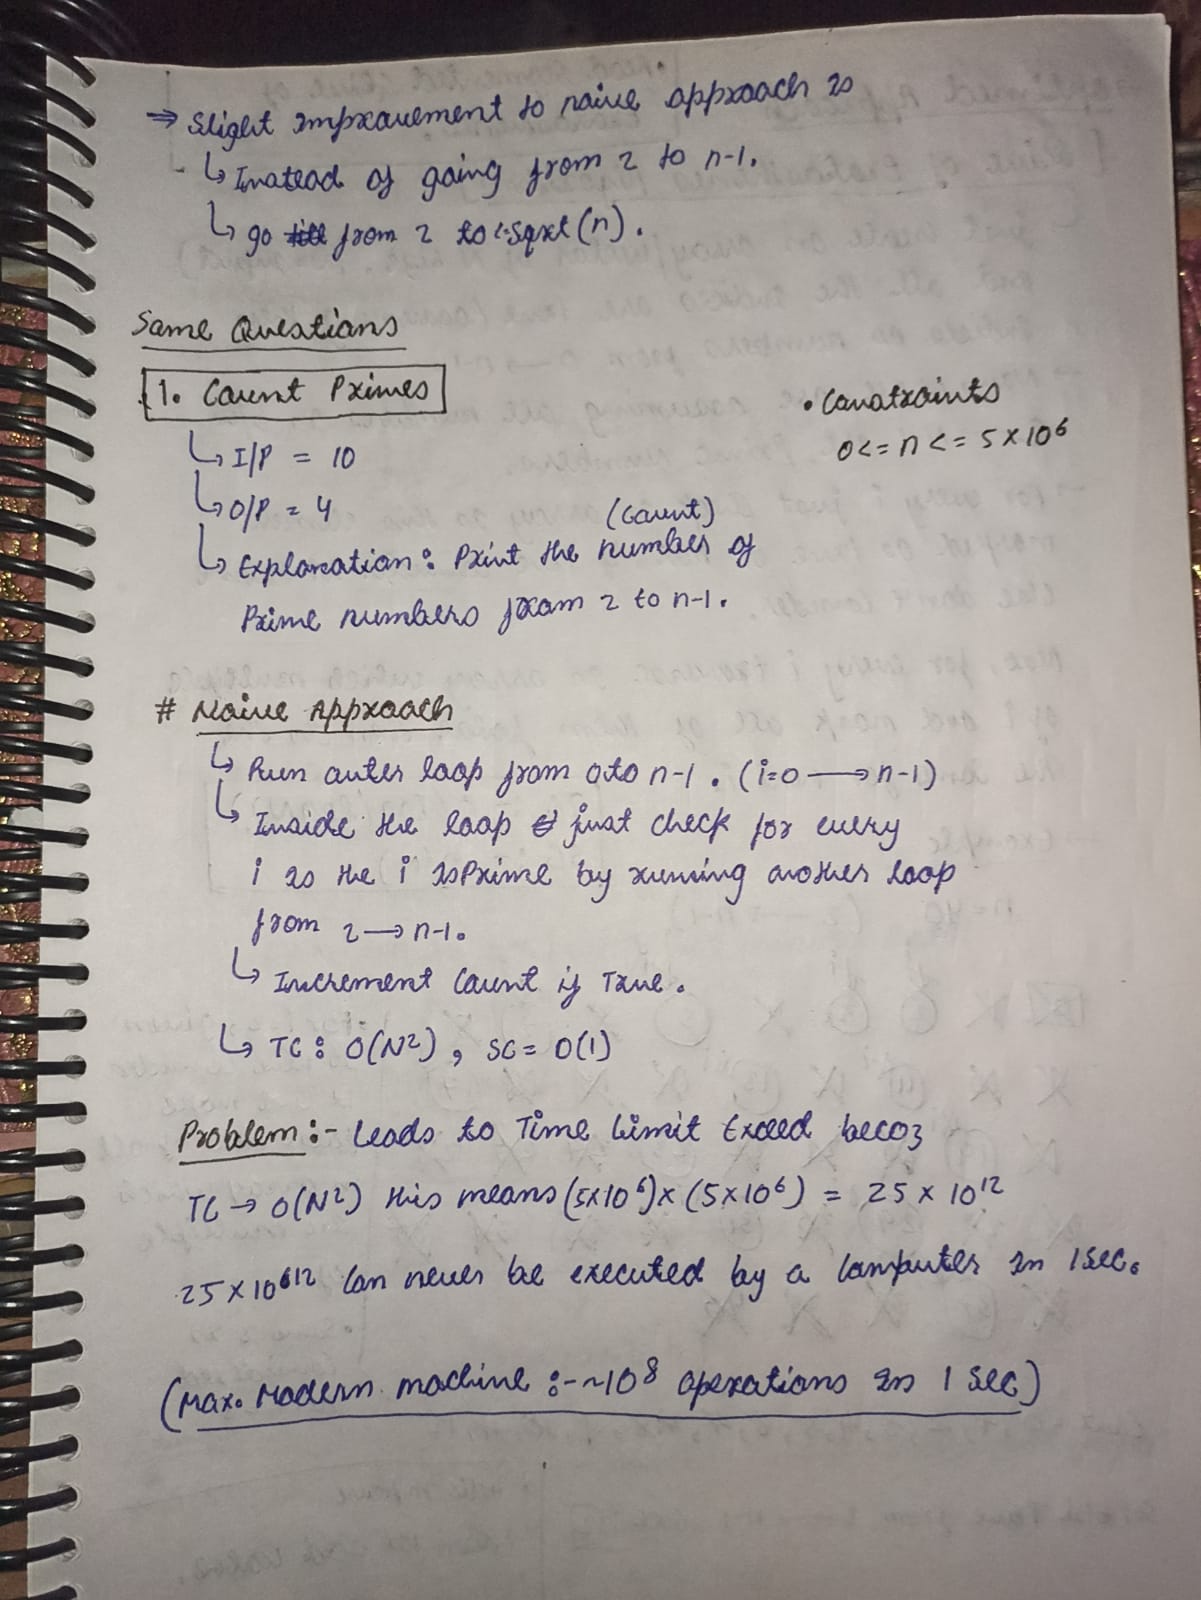 ⇒ Slight improvement to naive approach is
↳ Instead of going from 2 to n-1.
↳ go from 2 to <=sqrt(n).
Some Questions
1. Count Primes
• Constraints
0<= n <= 5×10⁶
↳ I/P = 10
↳ O/P = 4
(Count)
↳ Explanation: Print the number of
Prime numbers from 2 to n-1.
# Naive Approach
↳ Run outer loop from 0 to n-1. (i=0 → n-1)
↳ Inside the loop just check for every
i is the i isPrime by running another loop
from 2 → n-1.
↳ Increment Count if True.
↳ TC: O(N²), SC = O(1)
Problem:- Leads to Time Limit Exceed becoz
TC → O(N²) this means (5×10⁶)×(5×10⁶) = 25×10¹²
25×10¹² Can never be executed by a Computer in 1 sec.
(Max. Modern machine :- ~10⁸ operations in 1 Sec)